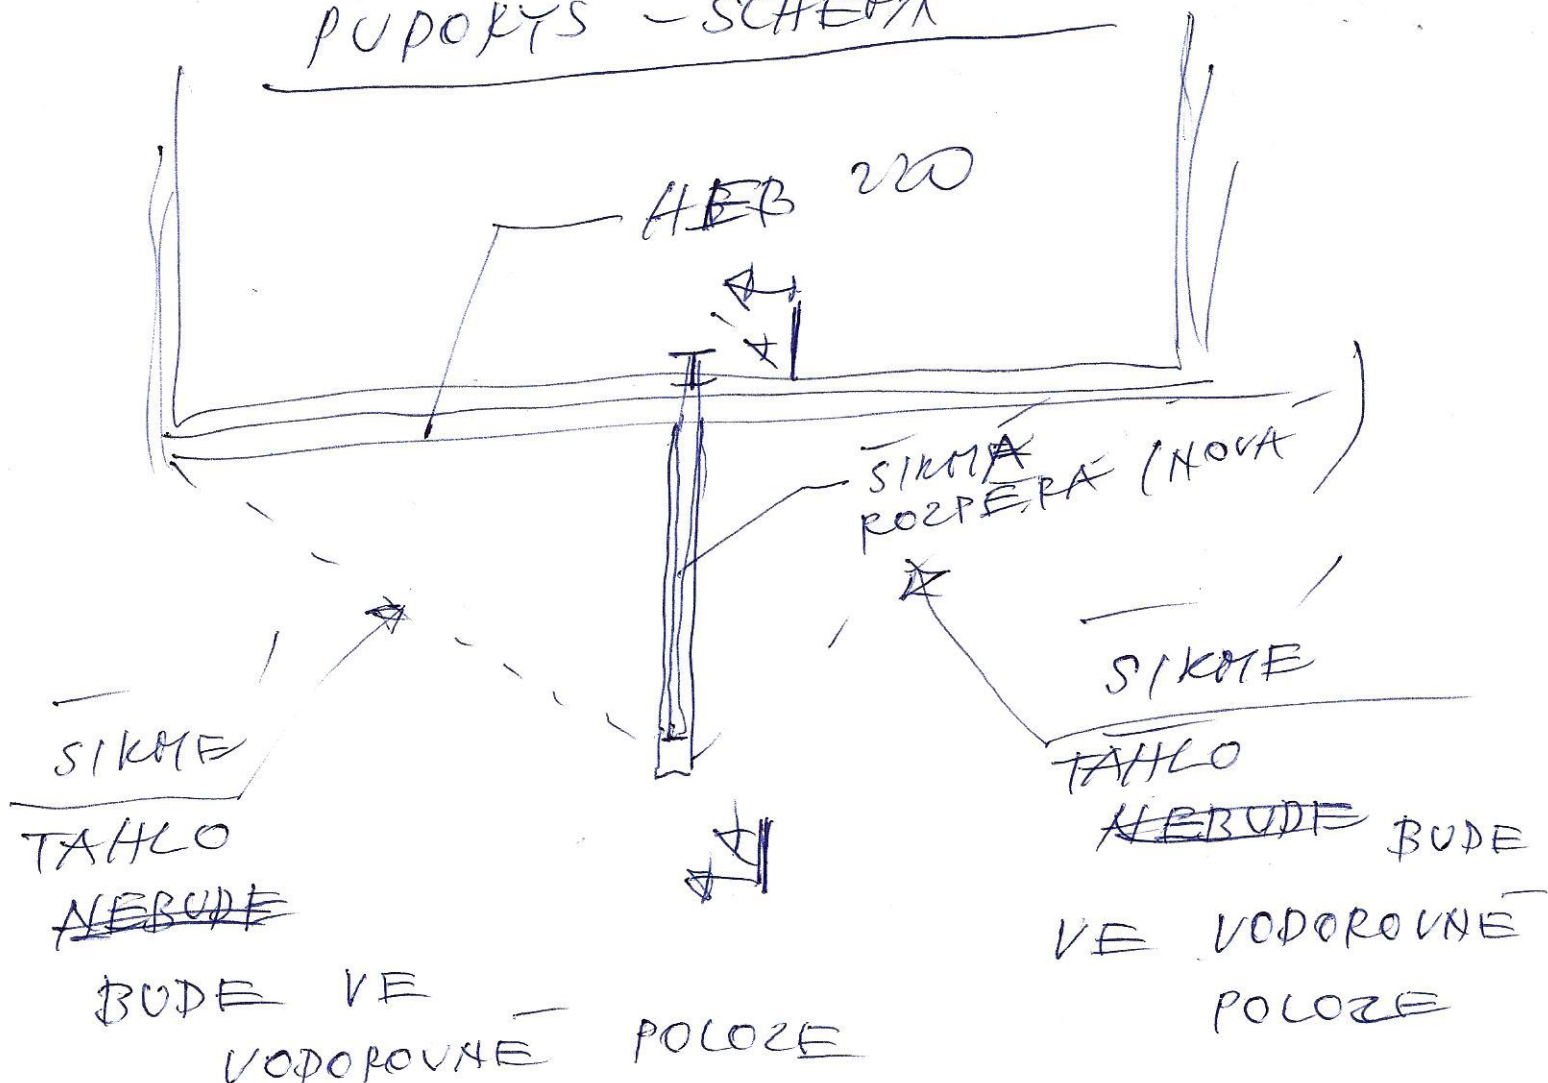 PŮDORYS - SCHEMA
HEB 220
A
ŠIKMÁ
ROZPĚRA (NOVÁ)
ŠIKMÉ
TÁHLO
NEBUDE BUDE
VE VODOROVNÉ
POLOZE
ŠIKMÉ
TAHLO
NEBUDE
BUDE VE
VODOROVNÉ POLOZE
A